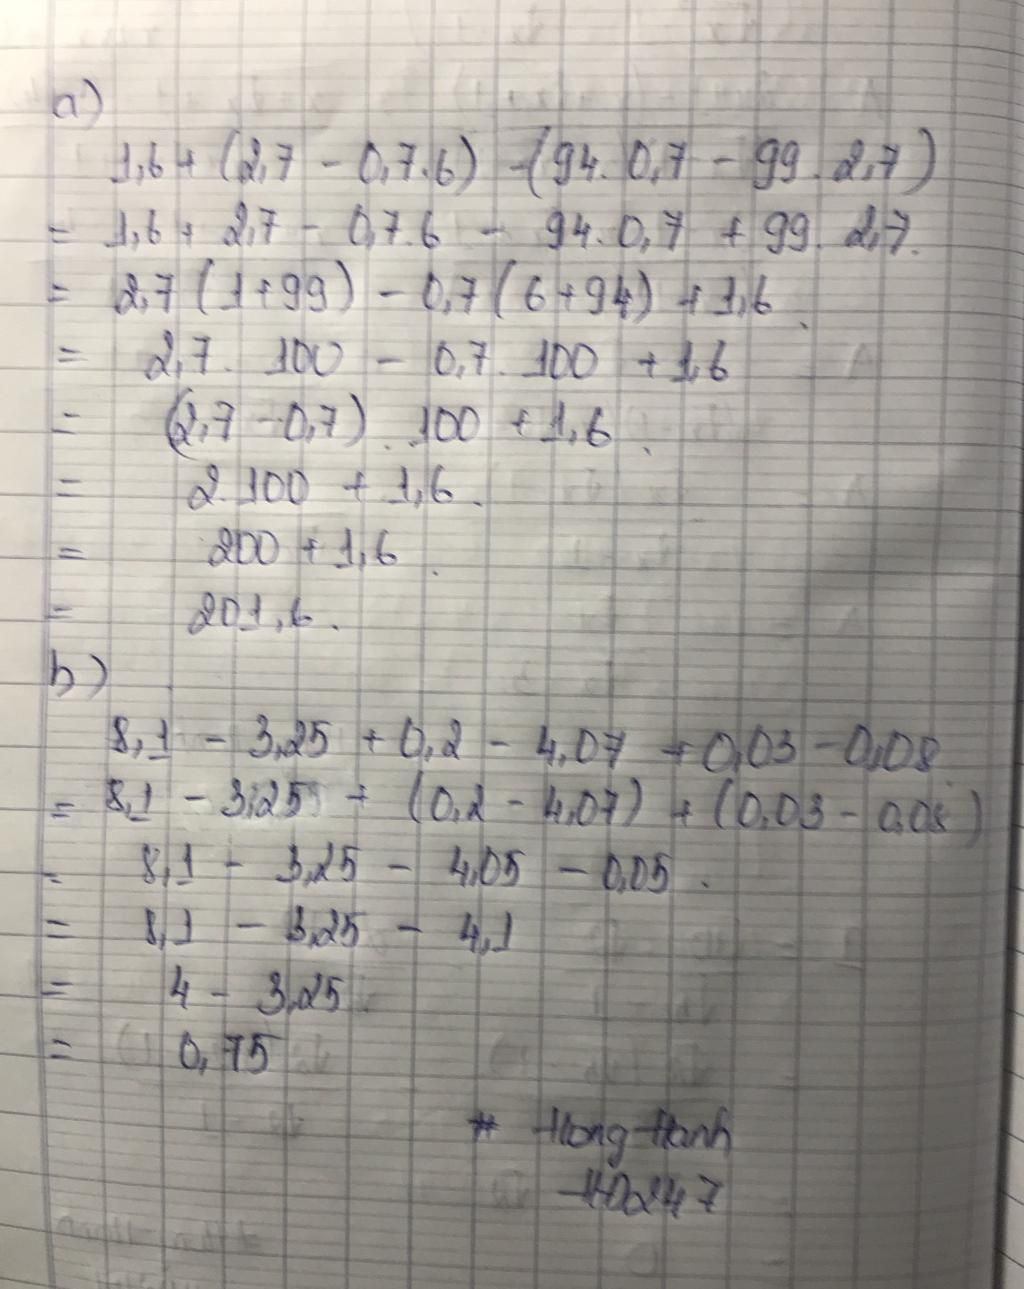 a)
1,6 + (2,7 - 0,7.6) - (94. 0,7 - 99. 2,7)
= 1,6 + 2,7 - 0,7.6 - 94.0,7 + 99. 2,7.
= 2,7 (1+99) - 0,7 (6+94) + 1,6.
= 2,7. 100 - 0,7. 100 + 1,6
= (2,7 - 0,7). 100 + 1,6.
= 2.100 + 1,6.
= 200 + 1,6.
= 201,6.
b)
8,1 - 3,25 + 0,2 - 4,07 + 0,03 - 0,08
= 8,1 - 3,25 + (0,2 - 4,07) + (0,03 - 0,08)
= 8,1 - 3,25 - 4,05 - 0,05.
= 8,1 - 3,25 - 4,1
= 4 - 3,25
= 0,75
* Hong Hanh